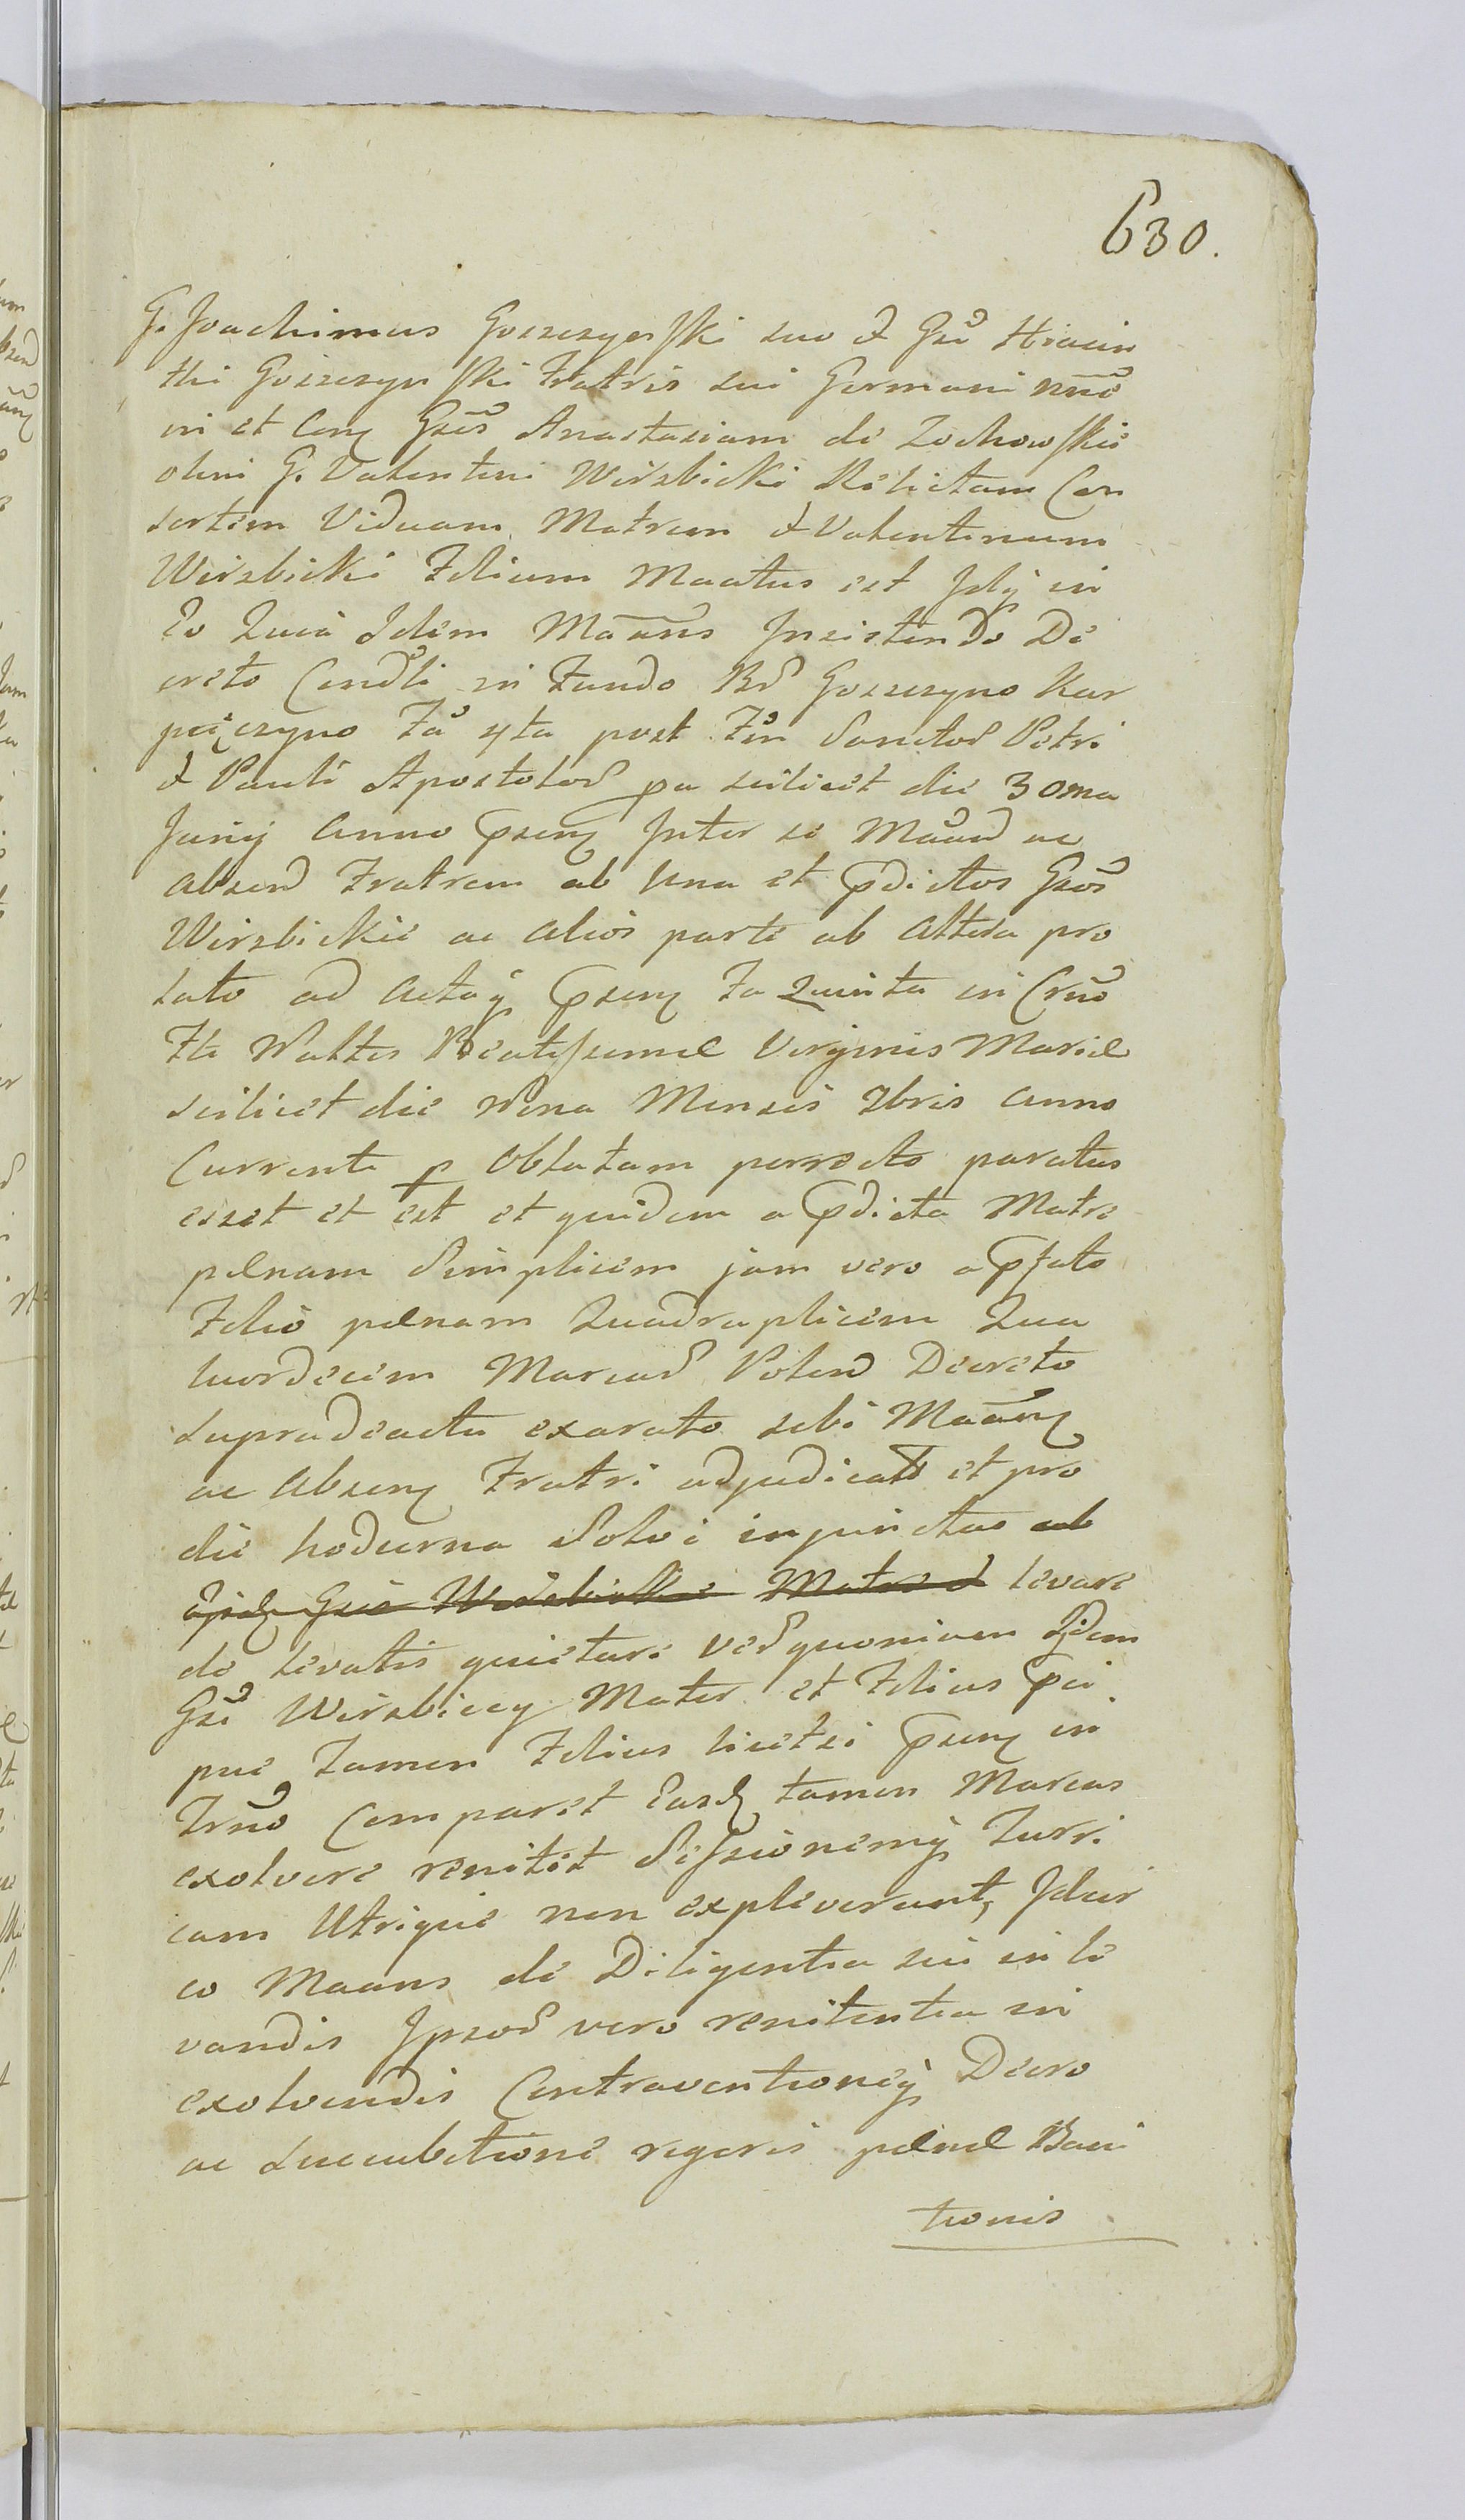 630.
G. Joachimus Gorszczynski suo & Gsi Hiacin
thi Gorszczynski Fratris sui Germani nnē
in et Conz Gsēs Anastasiam de Zochowskie
olim G. Valentini Wirzbicki Relictam Con
sortem Viduam Matrem & Valentinum
Wirzbicki Filium Maatus est Jdq in
Eo Quia Idem Maāns Insistendo De
creto Condli in Fundo Bd Gorszczyno Kar
pięczyno Fā 4ta post Fm Sanctor Petri
& Pauli Apostolor pa scilicet die 30ma
Junij Anno psenz Inter se Maand ac
absend Fratrem ab Una et pdictos Gsos
Wirzbickie ac alios parte ab Altera pro
lato ad Actaq psenz Fa Quinta in Crno
Fti Naltis Beatissimæ Virginis Mariæ
scilicet die Nona Mensis 7bris Anno
Currenti p Oblatam porrecto paratus
esset et est et quidem a pdicta Matre
pænam Simplicem jam vero a pfato
Filio pænam Quadruplicem Qua
tuordecim Marcar Polend Decreto
supradeacta exarato sibi Maānz
ac Absenz Fratri adjudicatas et pro
die hodierna Solvi injunctas ab
Gsis Wirzbickie Matre & levare
de levatis quietare Ver quoniam Iidem
Gsi Wirzbiccy Mater et Filius pci
pue Tamen Filius licet si psenz in
Trno Comparet Easdz tamen Marcas
exolvere renitet Sessionemq Turri
cam Utrique non expleverunt, Jdcir
co Maans de Diligentia sui in le
vandis Ipsor vero renitentia in
exolvendis Contraventioneq Decro
ac succubitione rigoris pænæ Bani
tionis